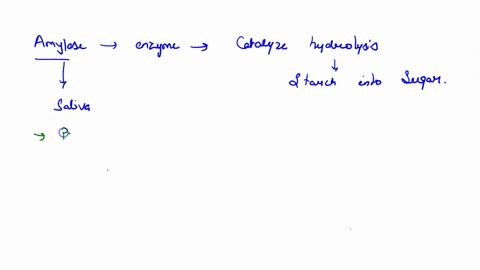 Amylase → enzyme → Catalyze hydrolysis
↓ ↓
Starch into Sugar.
Saliva
→ P